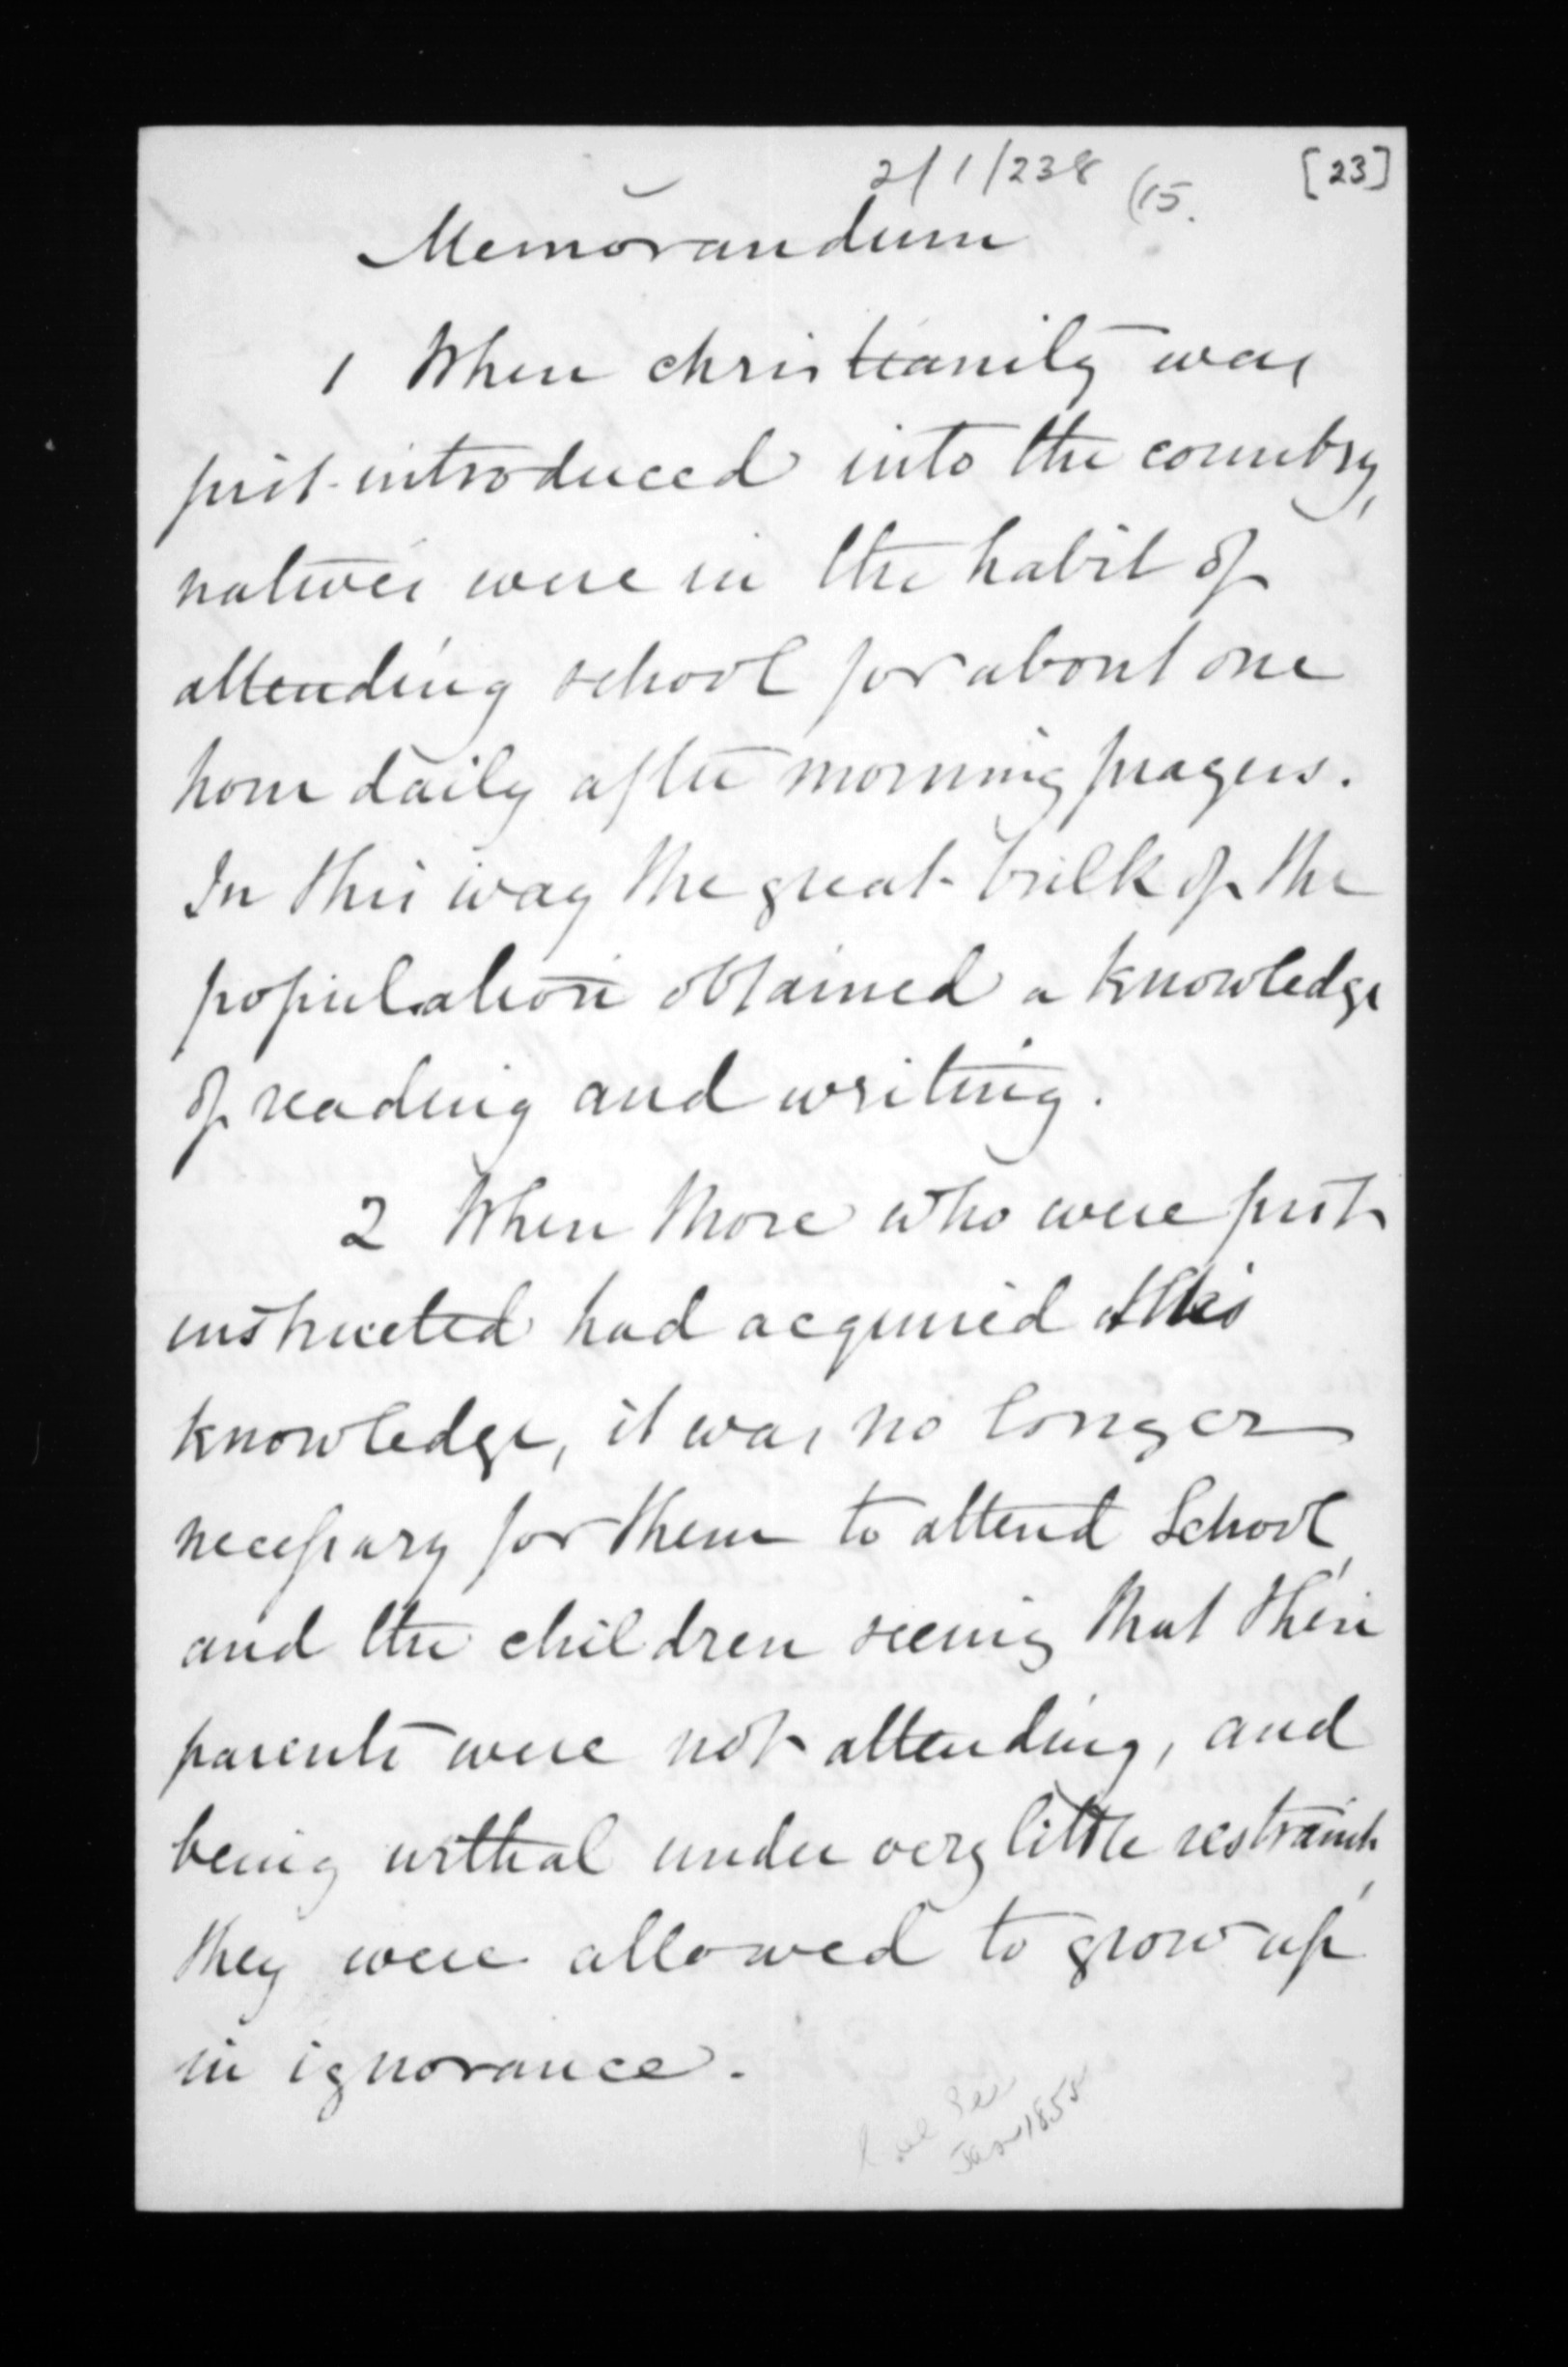 2/1/238 (15. [23]
Memorandum
1 When christianity was
first introduced into the country,
natives were in the habit of
attending school for about one
hour daily after morning prayers.
In this way the great bulk of the
population obtained a knowledge
of reading and writing.
2 When those who were first
instructed had acquired this
knowledge, it was no longer
necessary for them to attend School,
and the children seeing that their
parents were not attending, and
being withal under very little restraint,
they were allowed to grow up
in ignorance.
Jan 1858